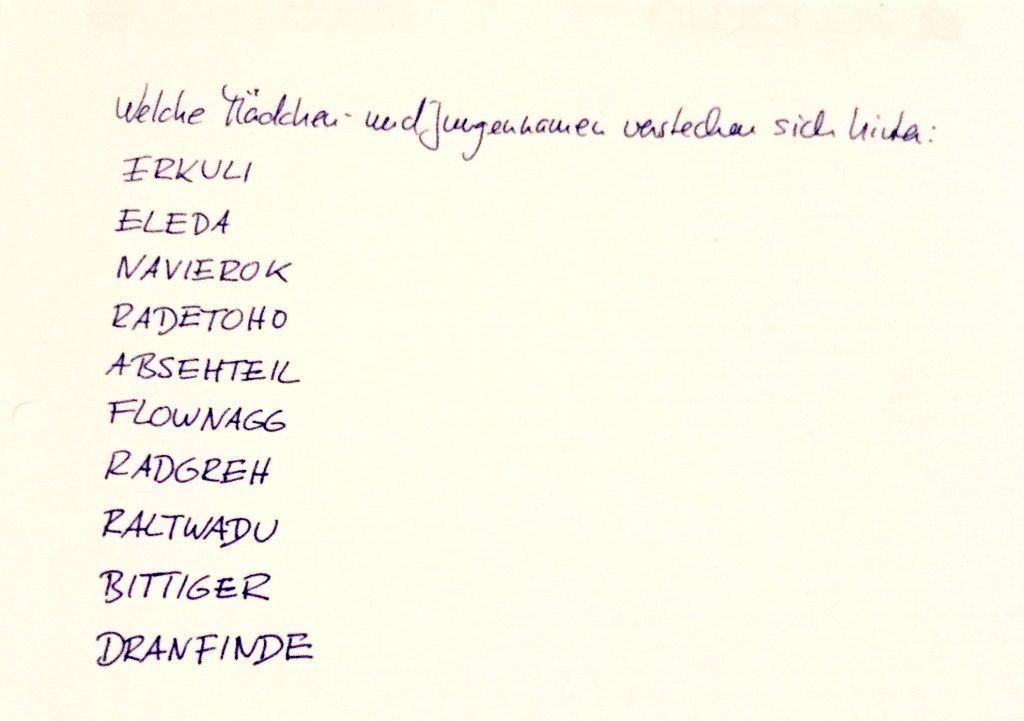 Welche Mädchen- und Jungennamen verstecken sich hinter:
ERKULI
ELEDA
NAVIEROK
RADETOHO
ABSEHTEIL
FLOWNAGG
RADGREH
RALTWADU
BITTIGER
DRANFINDE